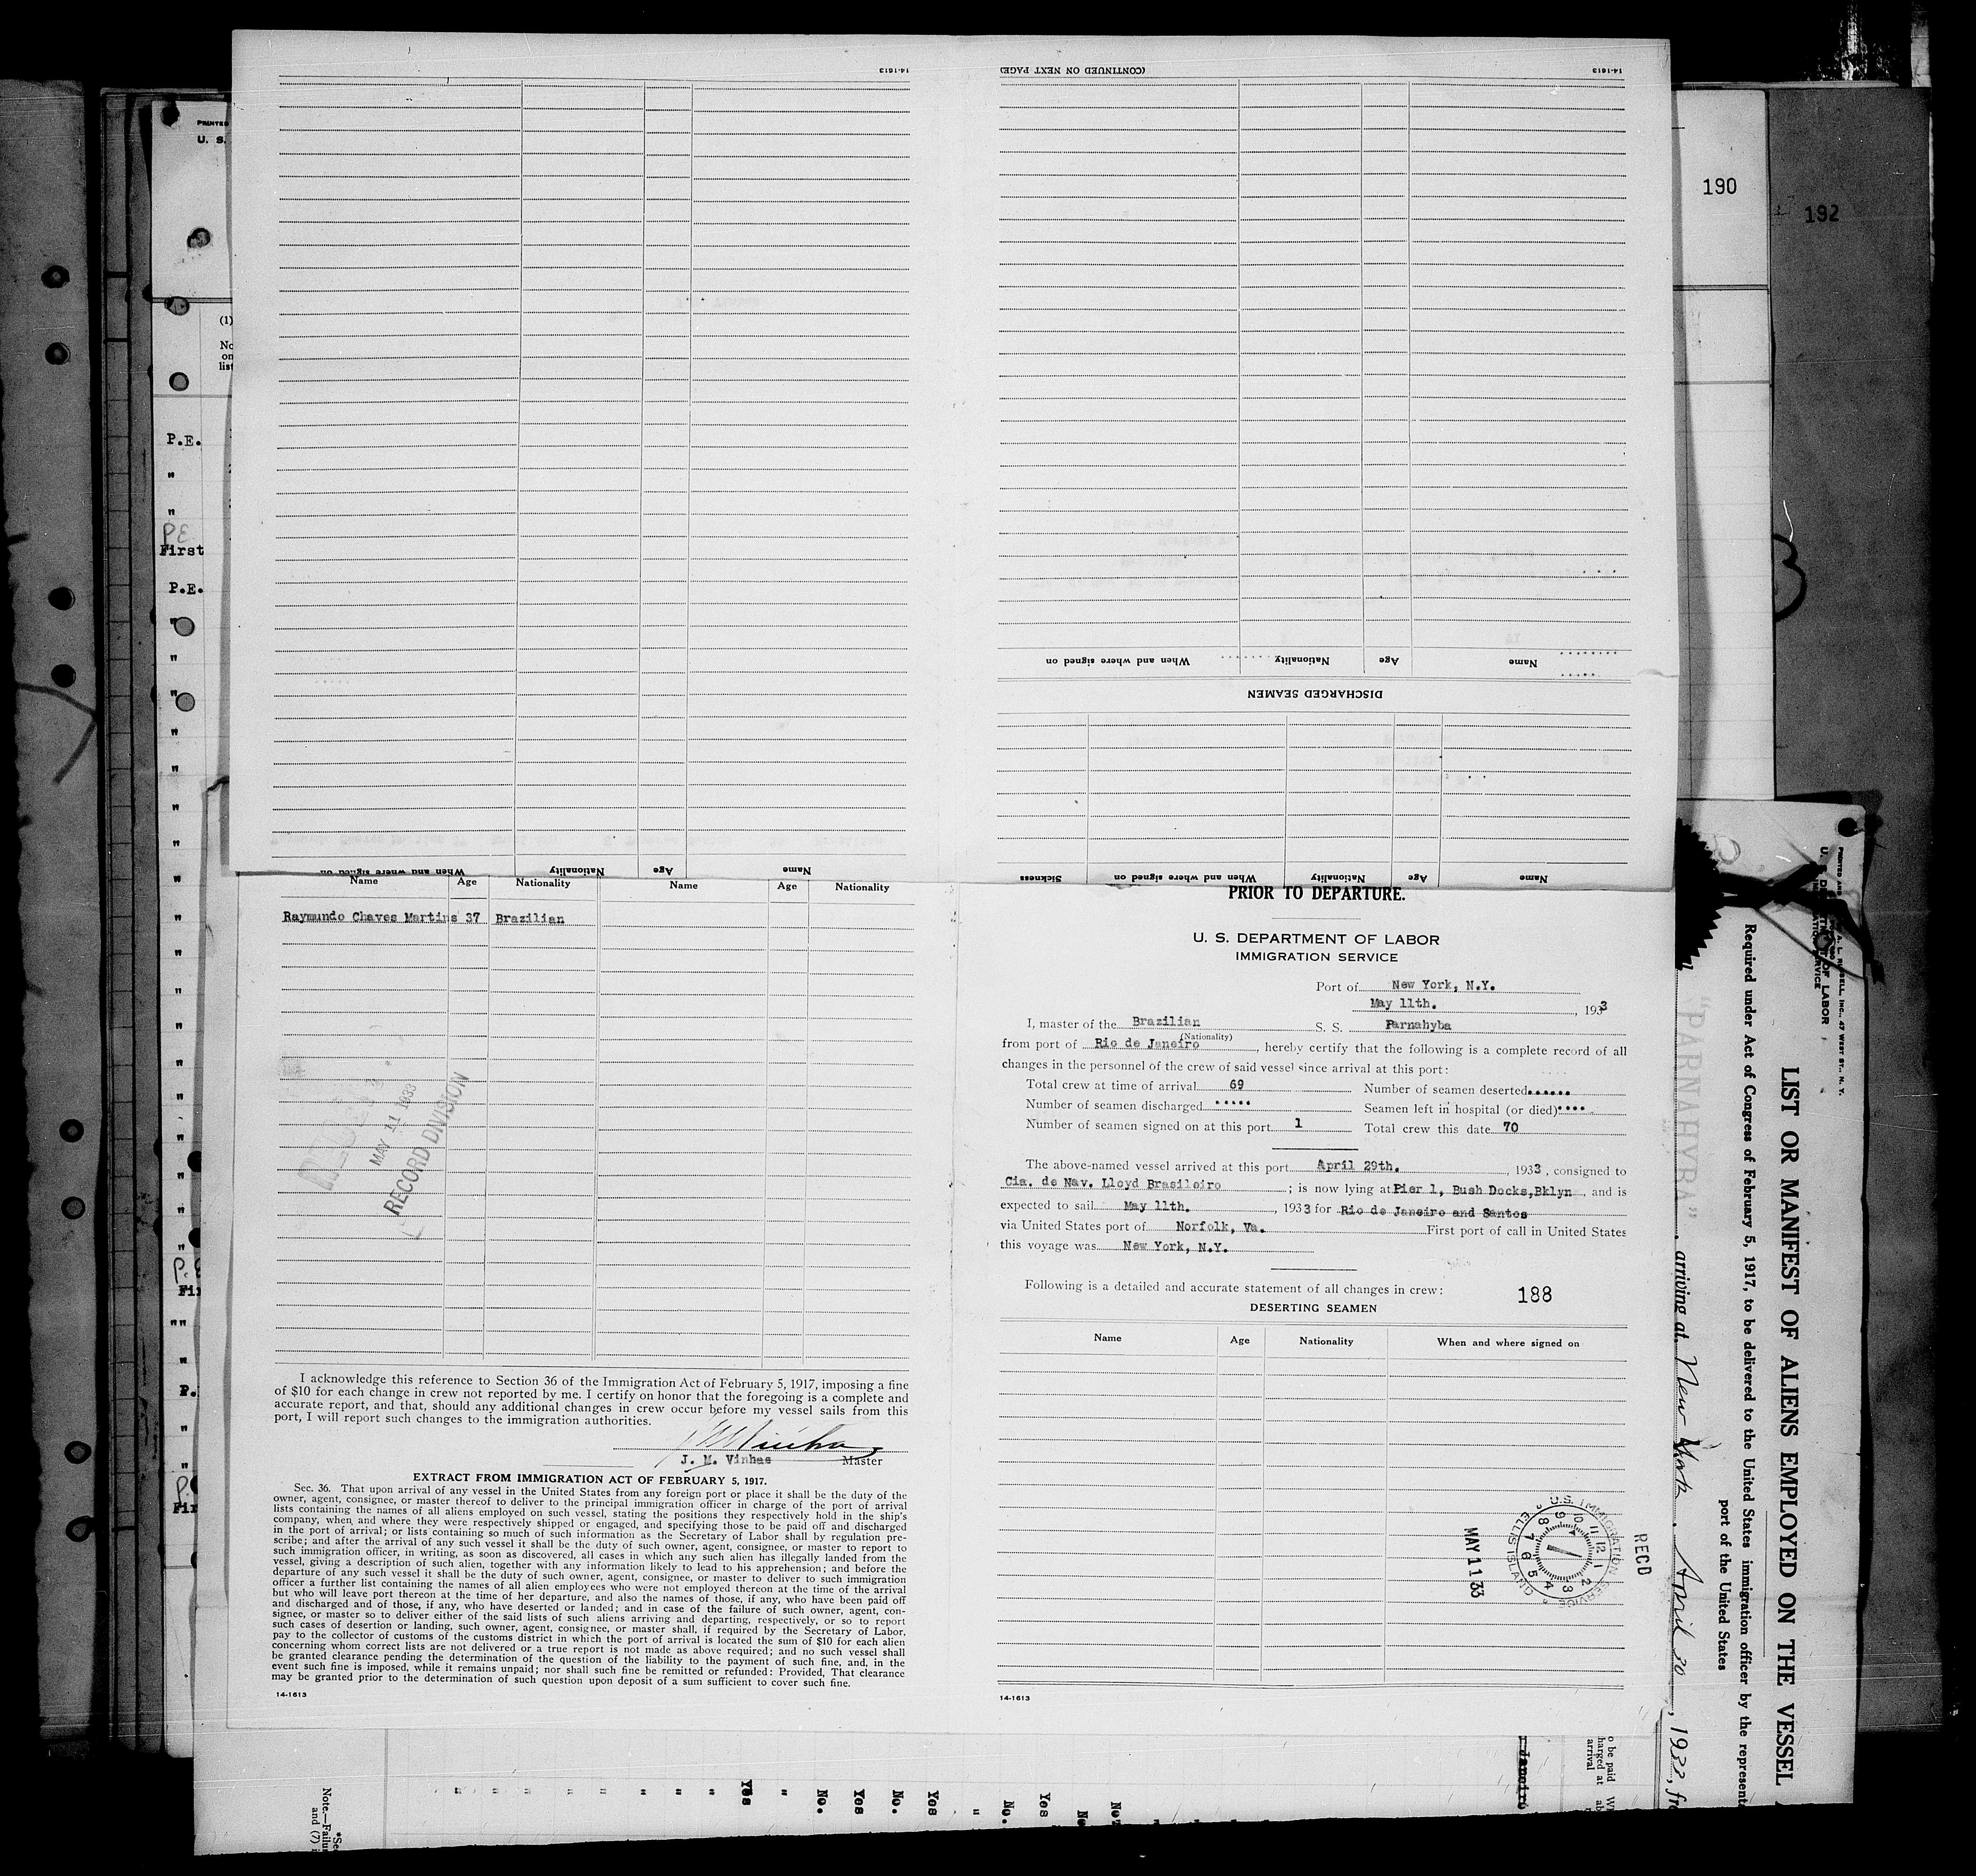 14-1613
(CONTINUED ON NEXT PAGE)
14-1613
PRINTED
U. S.
190
192
(1)
No
on
list
P.E.
"
"
PE
First
P.E.
When and where signed on
Nationality
Age
Name
DISCHARGED SEAMEN
When and where signed on
Nationality
Age
Name
Sickness
When and where signed on
Nationality
Age
Name
Name
Age
Nationality
Name
Age
Nationality
Raymundo Chaves Martins 37 Brazilian
MAY 11 1933
RECORD DIVISION
I acknowledge this reference to Section 36 of the Immigration Act of February 5, 1917, imposing a fine
of $10 for each change in crew not reported by me. I certify on honor that the foregoing is a complete and
accurate report, and that, should any additional changes in crew occur before my vessel sails from this
port, I will report such changes to the immigration authorities.
J. M. Vinhas Master
EXTRACT FROM IMMIGRATION ACT OF FEBRUARY 5, 1917.
Sec. 36. That upon arrival of any vessel in the United States from any foreign port or place it shall be the duty of the
owner, agent, consignee, or master thereof to deliver to the principal immigration officer in charge of the port of arrival
lists containing the names of all aliens employed on such vessel, stating the positions they respectively hold in the ship's
company, when and where they were respectively shipped or engaged, and specifying those to be paid off and discharged
in the port of arrival; or lists containing so much of such information as the Secretary of Labor shall by regulation pre-
scribe; and after the arrival of any such vessel it shall be the duty of such owner, agent, consignee, or master to report to
such immigration officer, in writing, as soon as discovered, all cases in which any such alien has illegally landed from the
vessel, giving a description of such alien, together with any information likely to lead to his apprehension; and before the
departure of any such vessel it shall be the duty of such owner, agent, consignee, or master to deliver to such immigration
officer a further list containing the names of all alien employees who were not employed thereon at the time of the arrival
but who will leave port thereon at the time of her departure, and also the names of those, if any, who have been paid off
and discharged and of those, if any, who have deserted or landed; and in case of the failure of such owner, agent, con-
signee, or master so to deliver either of the said lists of such aliens arriving and departing, respectively, or so to report
such cases of desertion or landing, such owner, agent, consignee, or master shall, if required by the Secretary of Labor,
pay to the collector of customs of the customs district in which the port of arrival is located the sum of $10 for each alien
concerning whom correct lists are not delivered or a true report is not made as above required; and no such vessel shall
be granted clearance pending the determination of the question of the liability to the payment of such fine, and, in the
event such fine is imposed, while it remains unpaid; nor shall such fine be remitted or refunded: Provided, That clearance
may be granted prior to the determination of such question upon deposit of a sum sufficient to cover such fine.
14-1613
PRIOR TO DEPARTURE.
U. S. DEPARTMENT OF LABOR
IMMIGRATION SERVICE
Port of New York, N.Y.
May 11th. , 1933
I, master of the Brazilian S. S. Parnahyba
(Nationality)
from port of Rio de Janeiro, hereby certify that the following is a complete record of all
changes in the personnel of the crew of said vessel since arrival at this port:
Total crew at time of arrival 69 Number of seamen deserted
Number of seamen discharged Seamen left in hospital (or died)
Number of seamen signed on at this port 1 Total crew this date 70
The above-named vessel arrived at this port April 29th. , 1933, consigned to
Cia. de Nav. Lloyd Brasileiro ; is now lying at Pier 1, Bush Docks, Bklyn , and is
expected to sail May 11th. , 1933 for Rio de Janeiro and Santos
via United States port of Norfolk, Va. First port of call in United States
this voyage was New York, N.Y.
Following is a detailed and accurate statement of all changes in crew:
188
DESERTING SEAMEN
Name
Age
Nationality
When and where signed on
RECD
U.S. IMMIGRATION SERVICE
ELLIS ISLAND
MAY 11 33
14-1613
LIST OR MANIFEST OF ALIENS EMPLOYED ON THE VESSEL
Required under Act of Congress of February 5, 1917, to be delivered to the United States immigration officer by the represent
port of the United States
"PARNAHYBA", arriving at New York, April 30, 1933, fr
Note.—Failu
and (7)
Yes
No.
Yes
No.
Yes
"
No.
Yes
Janeiro
o be paid
harged at
arrival